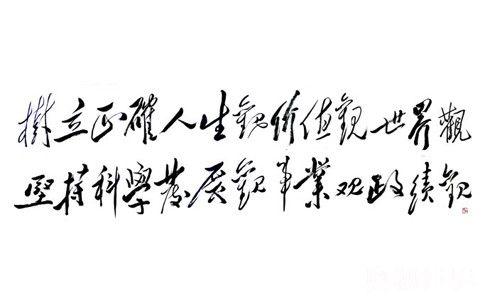 樹立正確人生觀价值觀世界觀
堅持科學發展觀事業观政績觀